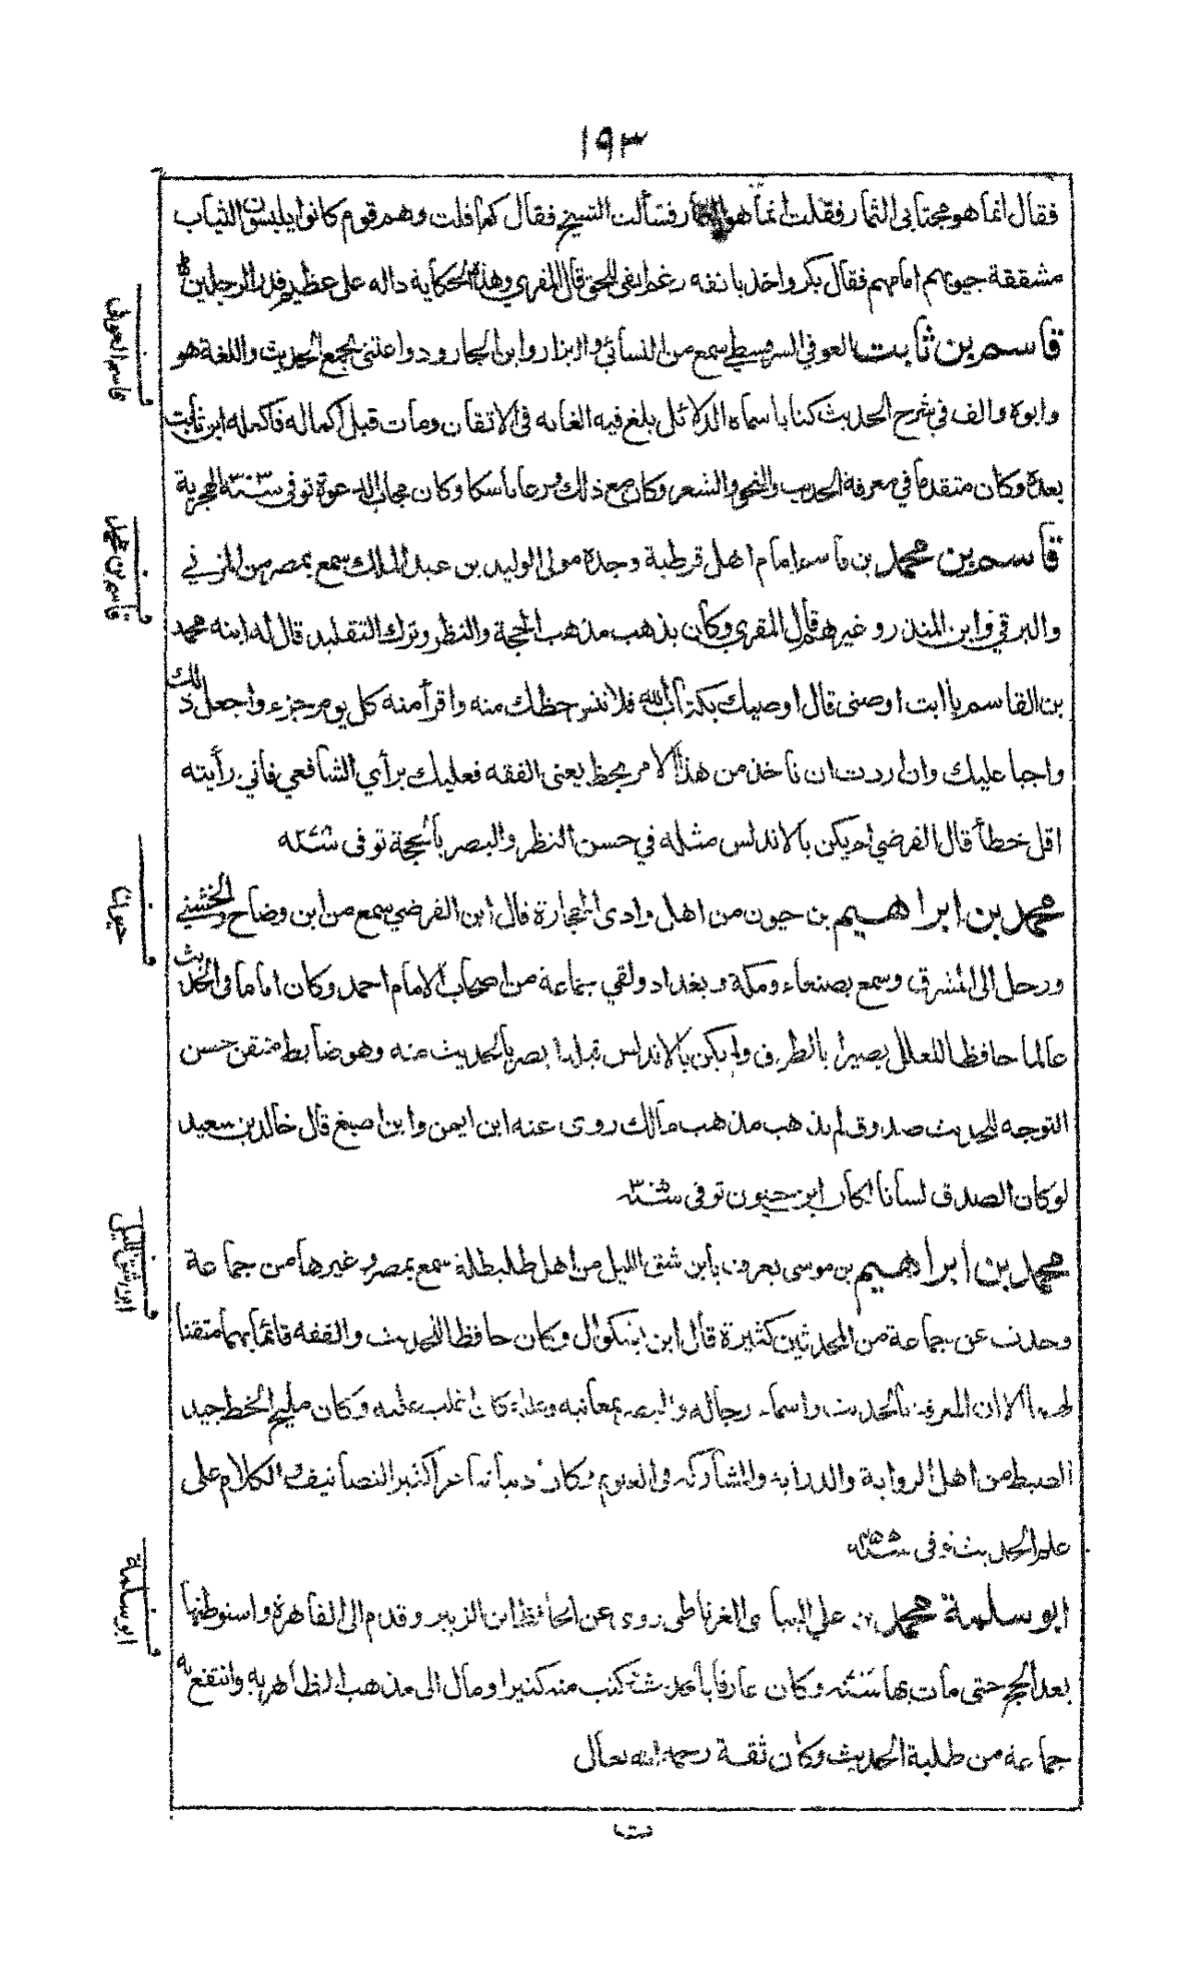 ١٩٣
فقال انما هو مجتابي الثمار فقلت انما هو النمار فسألت الشيخ فقال كما قلت وهم قوم كانوا يلبسون الثياب
مشققة جيوبهم امامهم فقال بكر واخذ بانفه رغم انفي للحق قال المقري وهذه الحكاية داله على عظيم قدر الرجلين
قاسم بن ثابت العوفي السرقسطي سمع من النسائي والبزار وابن الجارود واعتنى بجمع الحديث واللغة هو
وابوه والف في شرح الحديث كتابا سماه الدلائل بلغ فيه الغايه في الاتقان ومات قبل اكماله فاكمله ابن ثابت
بعده وكان متقدما في معرفة الحديث والنحو والشعر وكان مع ذلك ورعا ناسكا وكان مجاب الدعوة توفى سنة الهجرية
قاسم بن محمد بن قاسم امام اهل قرطبة وجده مولى الوليد بن عبد الملك سمع بمصر من المزني
والبرقي وابن المنذر وغيرهم قال المقري وكان يذهب مذهب الحجة والنظر وترك التقليد قال له ابنه محمد
بن القاسم يا ابت اوصنى قال اوصيك بكتاب الله فلا تنس حظك منه واقرأ منه كل يوم جزء واجعل ذلك
واجبا عليك وان اردت ان تاخذ من هذا الامر بحظ يعنى الفقه فعليك برأي الشافعي فاني رأيته
اقل خطأ قال الفرضي لم يكن بالاندلس مثله في حسن النظر والبصر بالحجة توفى
محمد بن ابراهيم بن حيون من اهل وادى الحجارة قال ابن الفرضي سمع من ابن وضاح والخشني
ورحل الى المشرق وسمع بصنعاء ومكة وبغداد ولقي جماعة من اصحاب الامام احمد وكان اماما في الحديث
عالما حافظا للعلل بصيرا بالطرق ولم يكن بالاندلس قبله ابصر بالحديث منه وهو ضابط متقن حسن
التوجه للحديث صدوق لم يذهب مذهب مالك روى عنه ابن ايمن وابن اصبغ قال خالد بن سعيد
لو كان الصدق لسانا لكان ابن حيون توفى
محمد بن ابراهيم بن موسى يعرف بابن شق الليل من اهل طليطلة سمع بمصر وغيرها من جماعة
وحدث عن جماعة من المحدثين كثيرة قال ابن بشكوال وكان حافظا للحديث والفقه قائما بهما متقنا
لهما الا ان المعرفة بالحديث واسماء رجاله والبصر بمعانيه وعلله كان اغلب عليه وكان مليح الخط جيد
الضبط من اهل الرواية والدراية والمشاركه في العلوم وكان دينا كثير التصانيف الكلام على
علم الحديث توفى
ابو سلمة محمد بن علي البياسي الغرناطى روى عن الحافظ ابن الزبير وقدم الى القاهرة واستوطنها
بعد الحج حتى مات بها وكان عارفا بالحديث كتب منه كثيرا ومال الى مذهب الظاهريه وانتفع به
جماعة من طلبة الحديث وكان ثقة رحمه الله تعالى
قاسم العوفي
قاسم بن محمد
حيون
ابن شق الليل
ابو سلمة